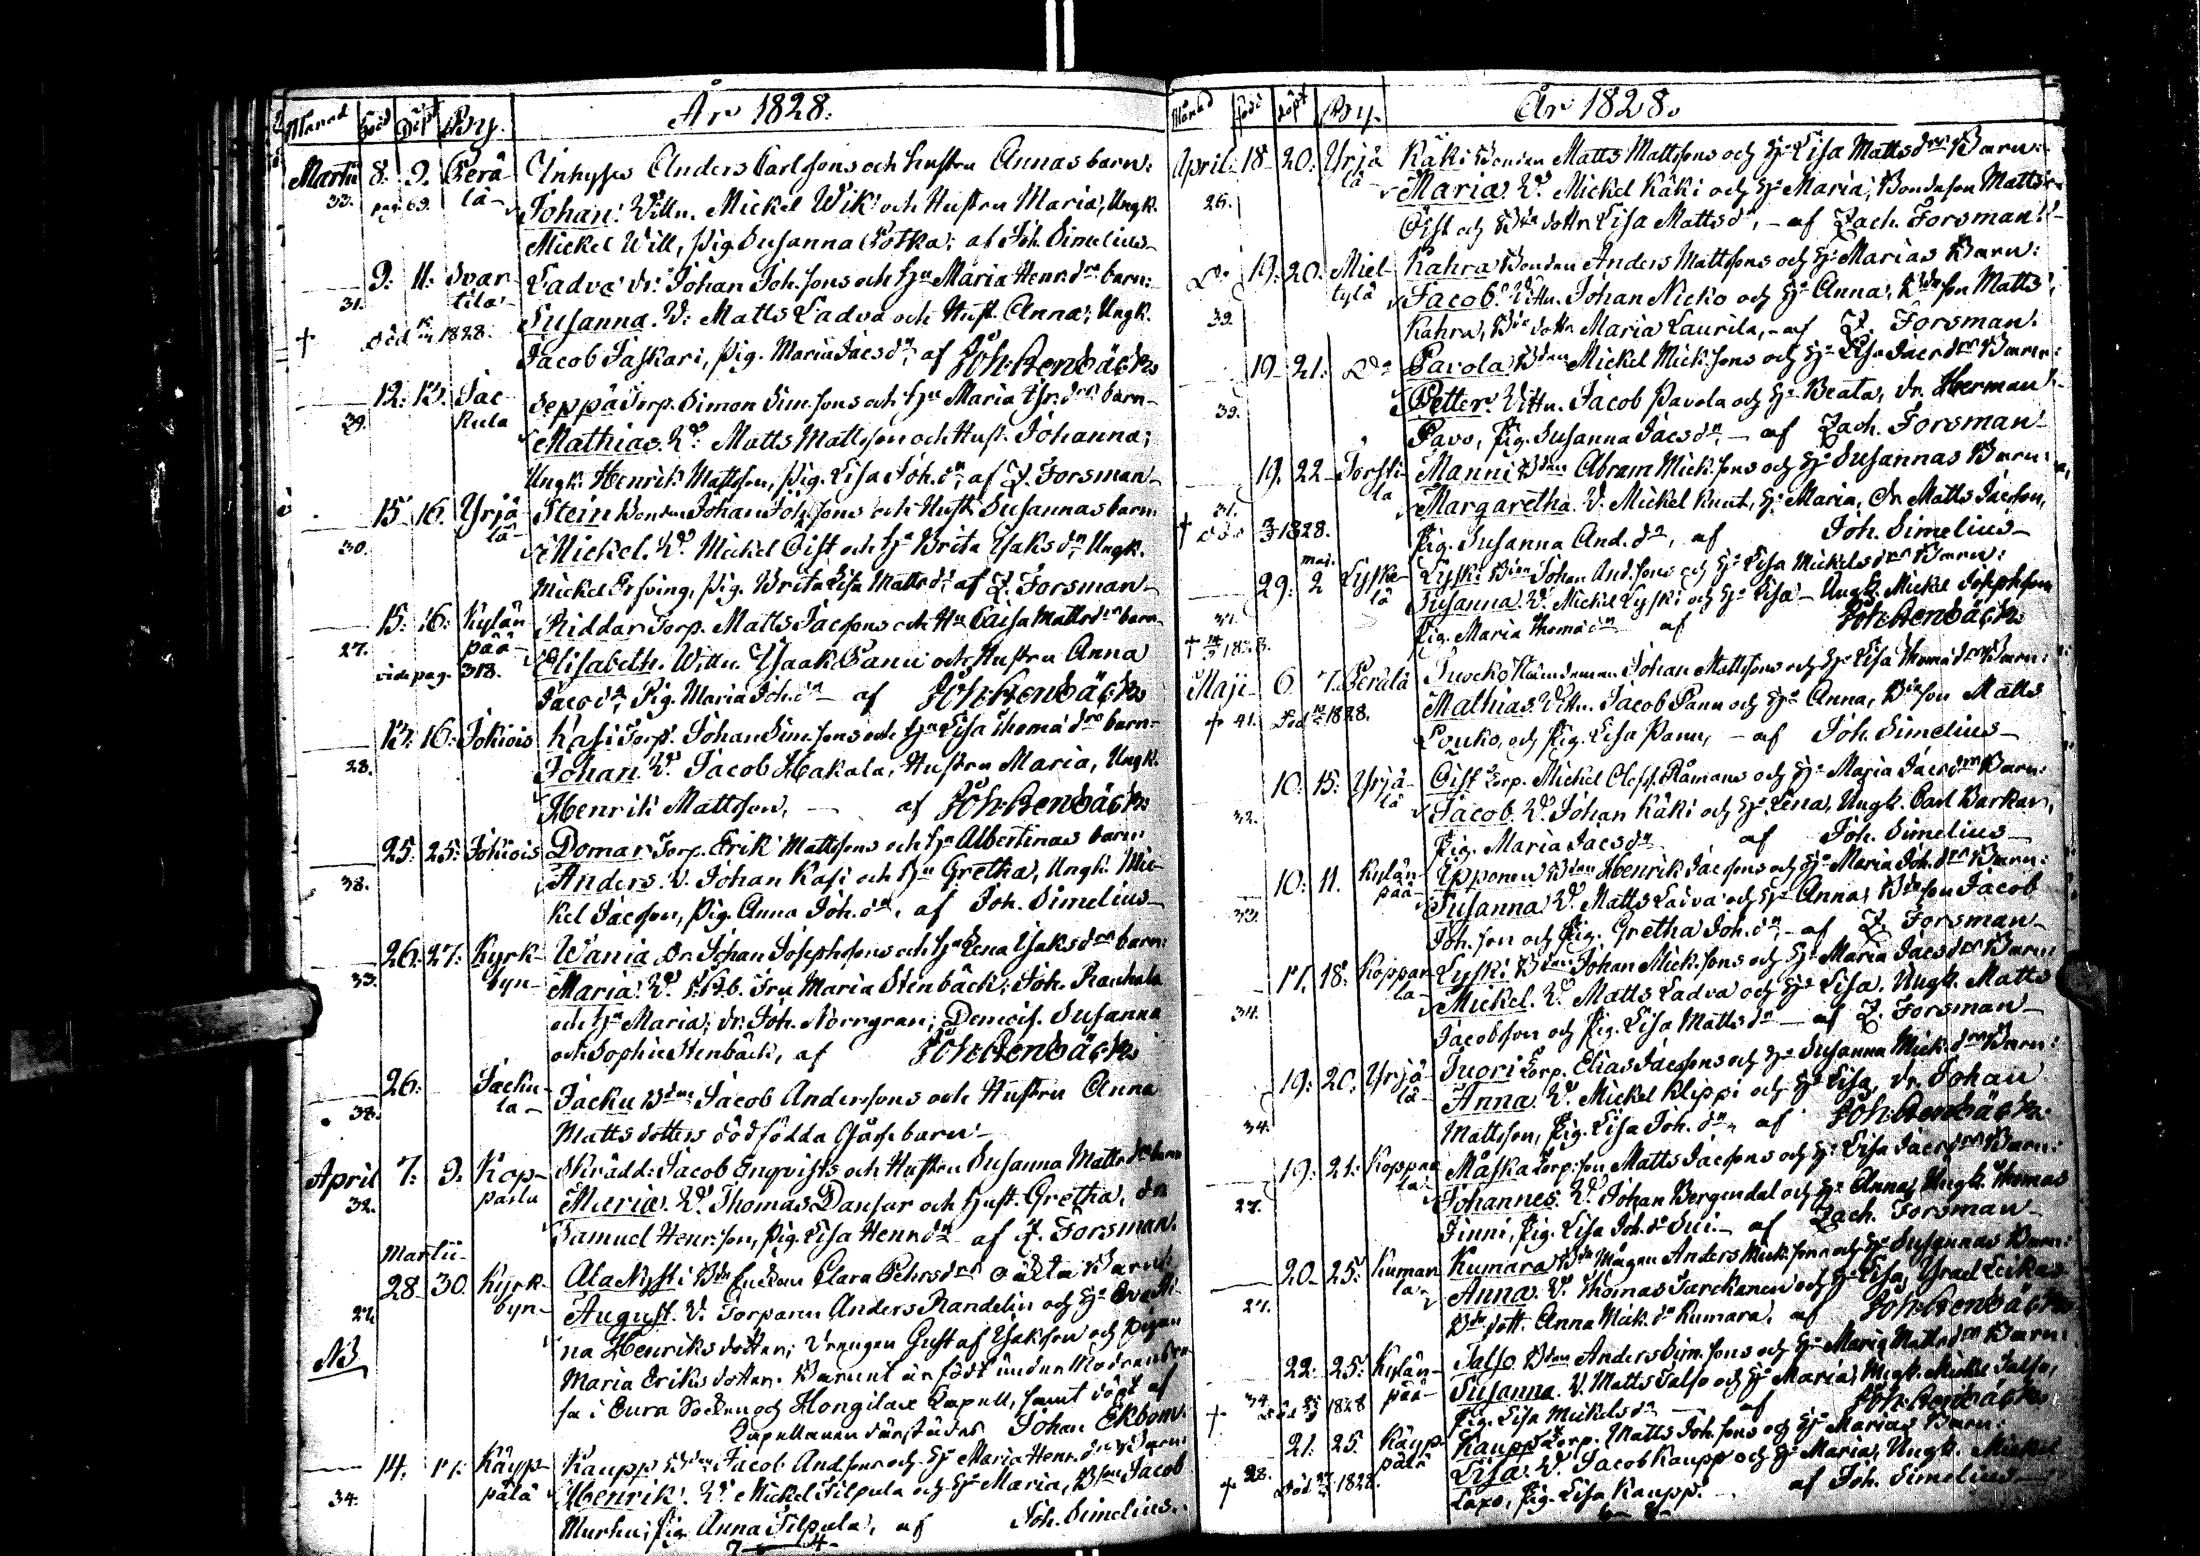 Månad Född Döpt By. År 1828.
Martii 8. 9. Perä- Inhyses Anders Carlssons och hustru Annas barn:
33. pag. 63. lä- Johan. Wittn. Mickel Wik och Hustru Maria, Ungk.
Mickel Will, pig. Susanna Potka; af Joh. Simelius
9. 11. Svar- Ladva dr. Johan Joh.sons och Hu Maria Henr.dr barn:
31. tila- Susanna. V. Matts Ladva och Hust. Anna; Ungk.
+ död 1828. Jacob Jaskari, pig. Maria Jacsdr, af Joh. Stenbäck
12. 13. Jac- Seppä Torp. Simon Sim.sons och Hu Maria barn
39. kula Mathias. Vo Matts Mattsson och Hust. Johanna;
Ungk. Henrik Mattsson, pig. Lisa Joh.dr, af Z. Forsman
15. 16. Yrjä- Stein Bonden Johan Joh.sons och Hust. Susannas barn
30. lä- Mickel. Vo Mickel Qist och Hu Brita Isaksdr, Ungk.
Mickel pig. Brita Lisa Mattsdr af Z. Forsman
15. 16. Kylän- Riddar Torp. Matts Jacssons och Hu Caisa Mattsdr barn
27. pää- Elisabeth. Wittn. Isaak Panu och Hustru Anna
vide pag. 318. Jacsdr, Pig. Maria Joh.dr af Joh. Stenbäck
13. 16. Jokiois Kasi Torp. Johan Sim.sons och Hu Lisa Thomædr barn
28. Johan. Vo Jacob Hakala, Hustru Maria, Ungk.
Henrik Mattsson, af Joh. Stenbäck
25. 25. Jokiois Domar Torp. Erik Mattssons och Hu Albertinas barn
38. Anders. V. Johan Kasi och Hu Gretha, Ungk. Mic-
kel Jacsson, pig. Anna Joh.dr, af Joh. Simelius
26. 27. Kyrk- Wania dr. Johan Josephssons och Hu Lena Isaksdr barn:
33. byn- Maria. Vo Fru Maria Stenbäck; Joh. Rauhala
och Hu Maria; dr. Joh. Norrgran; Demois. Susanna
och Sophie Stenbäck, af Joh. Stenbäck
26. Jacku- Jacku Bdns Jacob Anderssons och Hustru Anna
38. la- Mattsdotters dödfödda Gåssebarn
April 7. 9. Kop- Skrädd. Jacob Enqvists och Hustru Susanna Mattsdr barn
32. parla Maria. Vo Thomas Dansar och Hust. Gretha, dr
Samuel Henr.son, pig. Lisa Henr.dr af Z. Forsman.
Martii
28. 30. Kyrk- Ala Nysti Bde Enckan Clara Pehrsdrs oäkta Barn:
27. byn- August. V. Torparn Anders Randelin och Hu
NB na Henriksdotter; Drengen Gustaf Isaksson och pigan
Maria Eriksdotter. Barnet är födt under Modrens
i Eura Socken och Hongilax Capell, samt döpt af
Capellanen därstädes Johan Ekbom.
14. 17. Käyp- Kaupp Bdns Jacob And.sons och Hu Maria Henr.dr Barn:
34. pälä Henrik. Vo Mickel Filpula och Hu Maria, Bson Jacob
Murhu; pig. Anna Filpula, af Joh. Simelius.
7 4
Månad Född Döpt By. År 1828.
April 18. 20. Yrjä- Käki Bonden Matts Mattssons och Hu Lisa Mattsdrs Barn:
26. lä- Maria. Vo Mickel Käki och Hu Maria; Bondeson Matts
Qist och Bdedottn Lisa Mattsdr, af Zach. Forsman
Do 19. 20. Miel- Kahra Bonden Anders Mattssons och Hu Marias Barn:
39. tylä Jacob. Wittn. Johan Nicko och Hu Anna, Bdeson Matts
Kahra, Bdedottn Maria Laurila, af Z. Forsman.
19. 21. Do Pavola Bdns Mickel Mick.sons och Hu Lisa Jacsdrs Barn:
39. Petter. Wittn. Jacob Pavola och Hu Beata, dr. Herman
Pavo, pig. Susanna Jacsdr, af Zach. Forsman
19. 22. Torsti- Manni Bdns Abram Mick.sons och Hu Susannas Barn:
31. la Margaretha. V. Mickel Knut, Hu Maria, dr. Matts Jacsson,
+ död 1828. pig. Susanna And.dr, af Joh. Simelius
29. maj. 2. Lyske- Lyski Bdns Johan And.sons och Hu Lisa Mickelsdrs Barn:
37. lä Susanna. V. Mickel Lyski och Hu Lisa Ungk. Mickel Josephsson
+ 1828. pig. Maria Thomædr af Joh. Stenbäck
Maji 6. 7. Perälä Nämndeman Johan Mattssons och Hu Lisa Thomædrs Barn:
+ 41. död 1828. Mathias. Wittn. Jacob Panu och Hu Anna, Bdeson Matts
Louko, och pig. Lisa Panu, af Joh. Simelius
10. 15. Yrjä- Qist Torp. Mickel Olofss. Råmans och Hu Maria Jacsdrs Barn:
32. lä Jacob. Vo Johan Käki och Hu Lena, Ungk. Carl Barkar,
pig. Maria Jacsdr af Joh. Simelius
10. 11. Kylän- Epponen Bdns Henrik Jacssons och Hu Maria Joh.drs Barn:
33. pää- Susanna. Vo Matts Ladva och Hu Anna, Bdeson Jacob
Joh.son och pig. Gretha Joh.dr, af Z. Forsman
17. 18. Koppar- Lyski Bdns Johan Mick.sons och Hu Maria Jacsdrs Barn
34. la- Mickel. Vo Matts Ladva och Hu Lisa, Ungk. Matts
Jacobsson och pig. Lisa Mattsdr af Z. Forsman
19. 20. Yrjä- Tuori Torp. Elias Jacssons och Hu Susanna Mick.drs Barn:
34. lä- Anna. Vo Mickel Klippi och Hu Lisa, dr. Johan
Mattsson, pig. Lisa Joh.dr, af Joh. Stenbäck.
19. 21. Koppar- Måska Torp.son Matts Jacssons och Hu Lisa Jacsdrs Barn:
27. la- Johannes. Vo Johan Bergendal och Hu Anna, Ungk. Thomas
Finni, pig. Lisa Joh.dr af Zach. Forsman
20. 25. Kuman- Kumara Bde Mågen Anders Mick.sons och Hu Susannas Barn:
27. la- Anna. Vo Thomas Tarckanen och Hu Lisa, Israel Leikas
Bdedott. Anna Mick.dr Kumara, af Joh. Stenbäck
22. 25. Kylän- Talso Bdns Anders Sim.sons och Hu Maria Mattsdrs Barn:
34. pää- Susanna. V. Matts Talso och Hu Maria, Ungk. Mickel Talso,
+ död 1828 pig. Lisa Mickelsdr af Joh. Stenbäck
21. 25. Käyp- Kaupp Torp. Matts Joh.sons och Hu Marias Barn:
28. pälä Lisa. Vo Jacob Kaupp och Hu Maria, Ungk. Mickel
+ Död 1828. pig. Lisa Kaupp. af Joh. Simelius